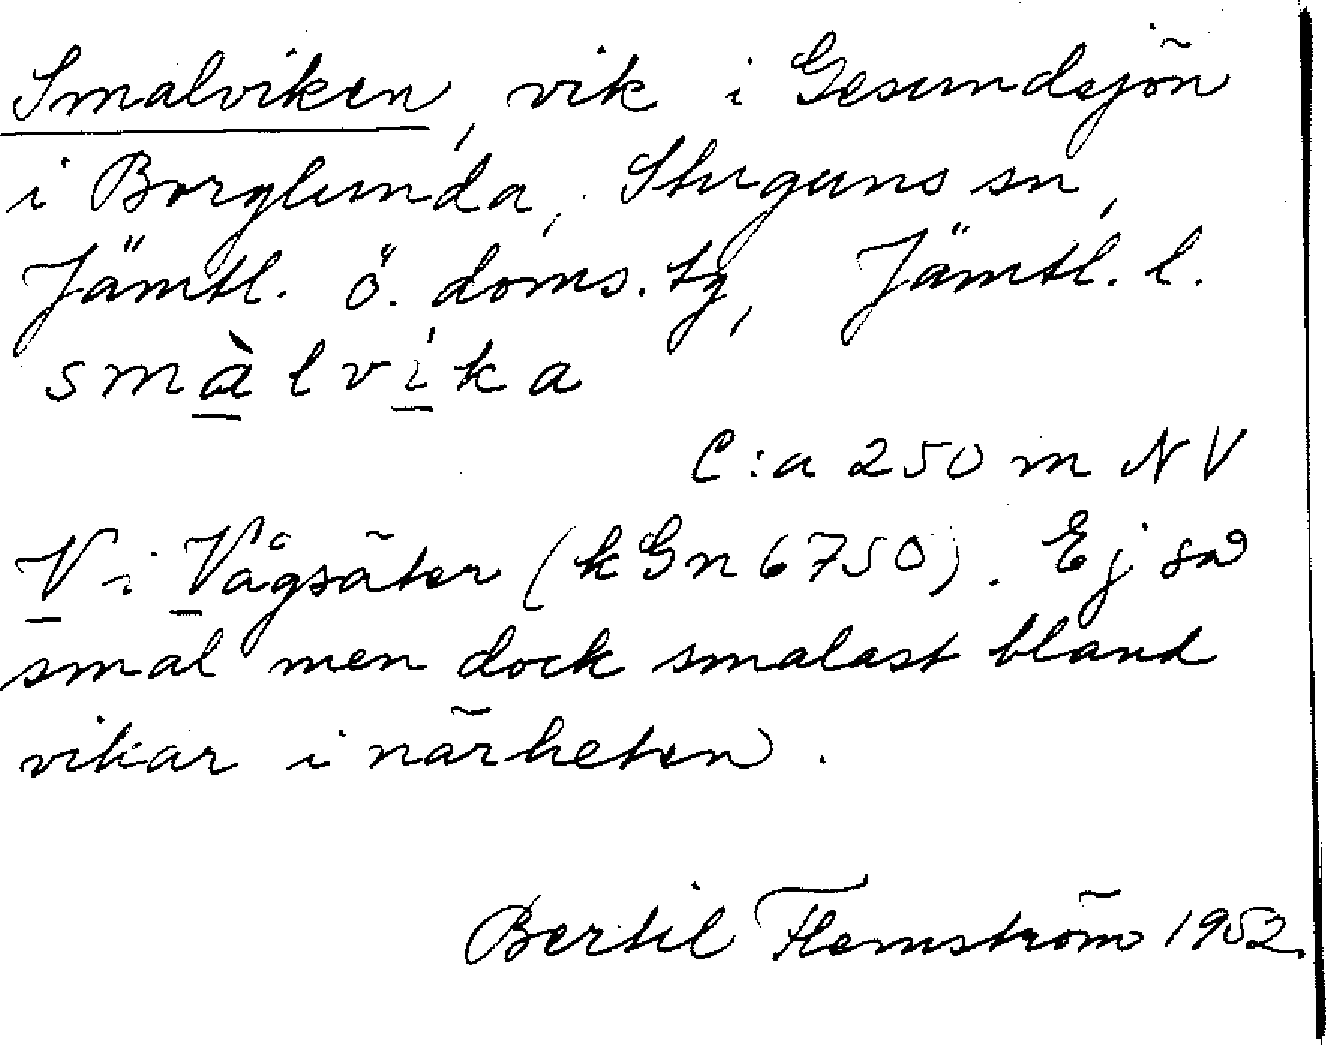 Smalviken, vik i Gesundsjön
i Borglunda, Stuguns sn,
Jämtl. ö. doms. tg, Jämtl. l.
smàlvíka
C:a 250 m NV
V i Vågsäter (kGn 6750). Ej så
smal men dock smalast bland
vikar i närheten.
Bertil Flemström 1952.